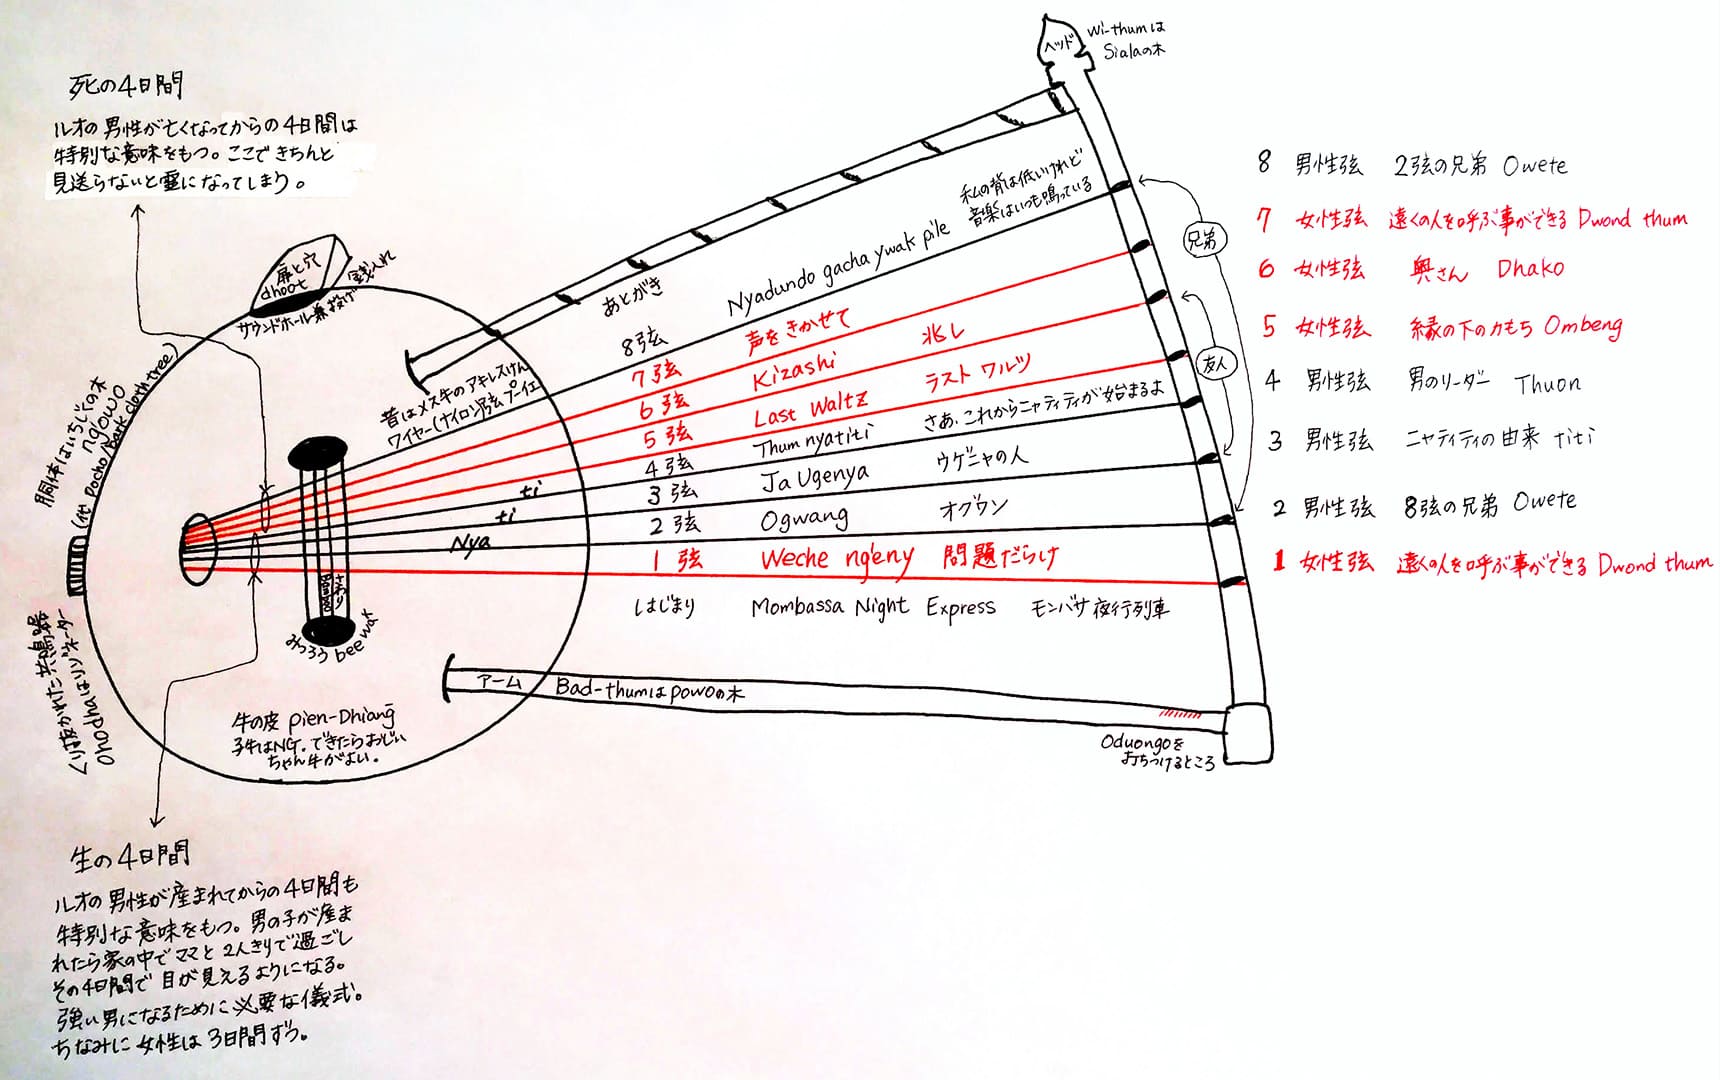 死の4日間
ルオの男性が亡くなってからの4日間は
特別な意味をもつ。ここできちんと
見送らないと霊になってしまう。
ヘッド
Wi-thumは
Sialaの木
扉と穴
dhoot
サウンドホール兼投げ銭入れ
胴体はいちぢくの木
ng'owo
(代 Pocho/bark cloth tree)
くり抜かれた共鳴器
Ohodhaはリゾネーター
昔はメス牛のアキレスけん
ワイヤー(ナイロン)弦プーイェ
あとがき
8弦 Nyadundo gacha ywak pile
私の背は低いけれど
音楽はいつも鳴っている
7弦 声をきかせて
6弦 Kizashi 兆し
5弦 Last Waltz ラスト ワルツ
4弦 Thum nyatiti さあ、これからニャティティが始まるよ
3弦 Ja Ugenya ウゲニャの人
2弦 Ogwang オグワン
1弦 Weche ng'eny 問題だらけ
はじまり Mombassa Night Express モンバサ夜行列車
ti
ti
Nya
さわり
みつろう bee wax
兄弟
友人
8 男性弦 2弦の兄弟 Owete
7 女性弦 遠くの人を呼ぶ事ができる Dwond thum
6 女性弦 奥さん Dhako
5 女性弦 縁の下の力もち Ombeng
4 男性弦 男のリーダー Thuon
3 男性弦 ニャティティの由来 titi
2 男性弦 8弦の兄弟 Owete
1 女性弦 遠くの人を呼ぶ事ができる Dwond thum
アーム Bad-thumはpowoの木
Oduongoを
打ちつけるところ
牛の皮 pien-Dhiang
子牛はNG。できたらおじい
ちゃん牛がよい。
生の4日間
ルオの男性が産まれてからの4日間も
特別な意味をもつ。男の子が産ま
れたら家の中でママと2人きりで過ごし
その4日間で目が見えるようになる。
強い男になるために必要な儀式。
ちなみに女性は3日間ずつ。